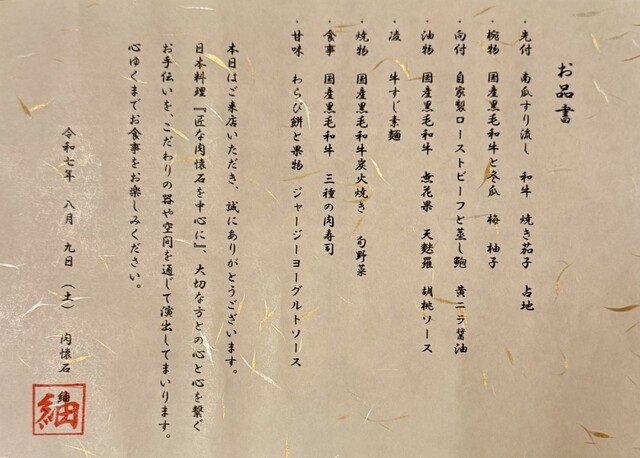 お品書
・先付　南瓜すり流し　和牛　焼き茄子　占地
・椀物　国産黒毛和牛と冬瓜　梅　柚子
・向付　自家製ローストビーフと蒸し鮑　黄ニラ醤油
・油物　国産黒毛和牛　無花果　天麩羅　胡桃ソース
・凌　牛すじ素麺
・焼物　国産黒毛和牛炭火焼き　旬野菜
・食事　国産黒毛和牛　三種の肉寿司
・甘味　わらび餅と果物　ジャージーヨーグルトソース
本日はご来店いただき、誠にありがとうございます。
日本料理『匠な肉懐石を中心に』、大切な方との心と心を繋ぐ
お手伝いを、こだわりの器や空間を通じて演出してまいります。
心ゆくまでお食事をお楽しみください。
令和七年　八月　九日　（土）　肉懐石　紬
紬